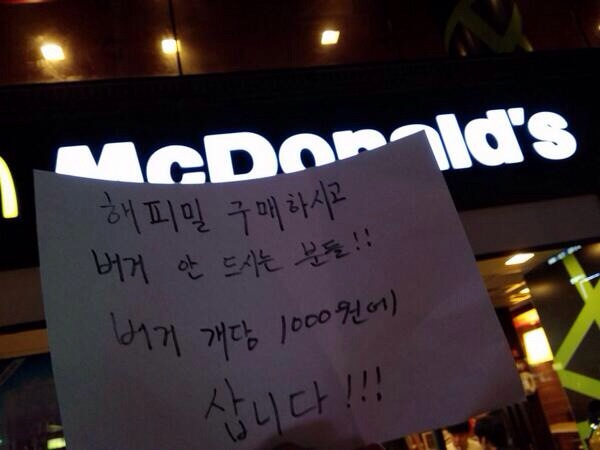 McDonald's
해피밀 구매하시고
버거 안 드시는 분들!!
버거 개당 1000원에
삽니다!!!